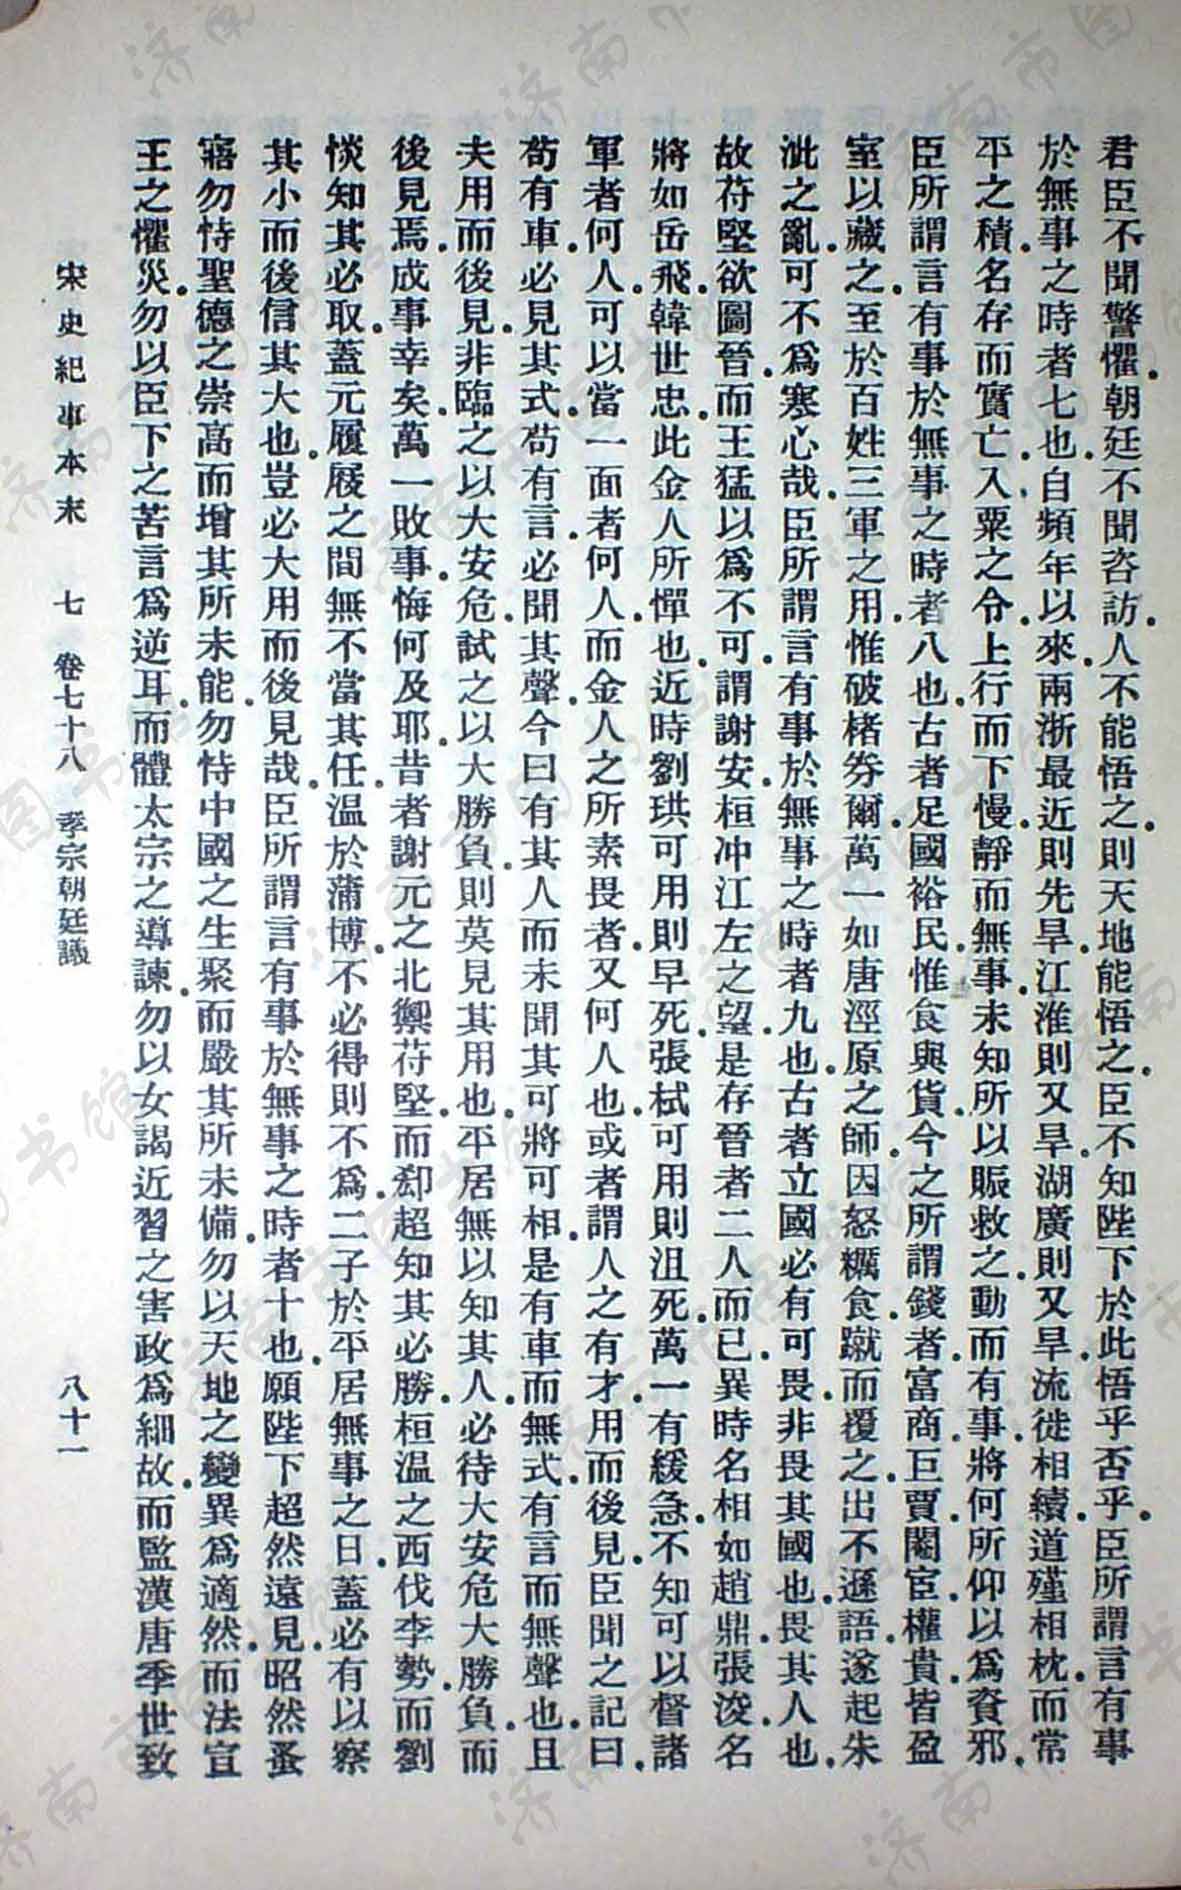 君臣不聞警懼朝廷不聞咨訪人不能悟之則天地能悟之臣不知陛下於此悟乎否乎臣所謂言有事
於無事之時者七也自頻年以來兩浙最近則先旱江淮則又旱湖廣則又旱流徙相續道殣相枕而常
平之積名存而實亡入粟之令上行而下慢靜而無事未知所以賑救之動而有事將何所仰以爲資邪
臣所謂言有事於無事之時者八也古者足國裕民惟食與貨今之所謂錢者富商巨賈閹宦權貴皆盈
室以藏之至於百姓三軍之用惟破楮券爾萬一如唐涇原之師因怒糲食蹴而覆之出不遜語遂起朱
泚之亂可不爲寒心哉臣所謂言有事於無事之時者九也古者立國必有可畏非畏其國也畏其人也
故苻堅欲圖晉而王猛以爲不可謂謝安桓冲江左之望是存晉者二人而已異時名相如趙鼎張浚名
將如岳飛韓世忠此金人所憚也近時劉珙可用則早死張栻可用則沮死萬一有緩急不知可以督諸
軍者何人可以當一面者何人而金人之所素畏者又何人也或者謂人之有才用而後見臣聞之記曰
苟有車必見其式苟有言必聞其聲今曰有其人而未聞其可將可相是有車而無式有言而無聲也且
夫用而後見非臨之以大安危試之以大勝負則莫見其用也平居無以知其人必待大安危大勝負而
後見焉成事幸矣萬一敗事悔何及耶昔者謝元之北禦苻堅而郄超知其必勝桓温之西伐李勢而劉
惔知其必取蓋元履屐之間無不當其任温於蒲博不必得則不爲二子於平居無事之日蓋必有以察
其小而後信其大也豈必大用而後見哉臣所謂言有事於無事之時者十也願陛下超然遠見昭然蚤
寤勿恃聖德之崇高而增其所未能勿恃中國之生聚而嚴其所未備勿以天地之變異爲適然而法宣
王之懼災勿以臣下之苦言爲逆耳而體太宗之導諫勿以女謁近習之害政爲細故而監漢唐季世致
宋史紀事本末 七 卷七十八 孝宗朝廷議 八十一